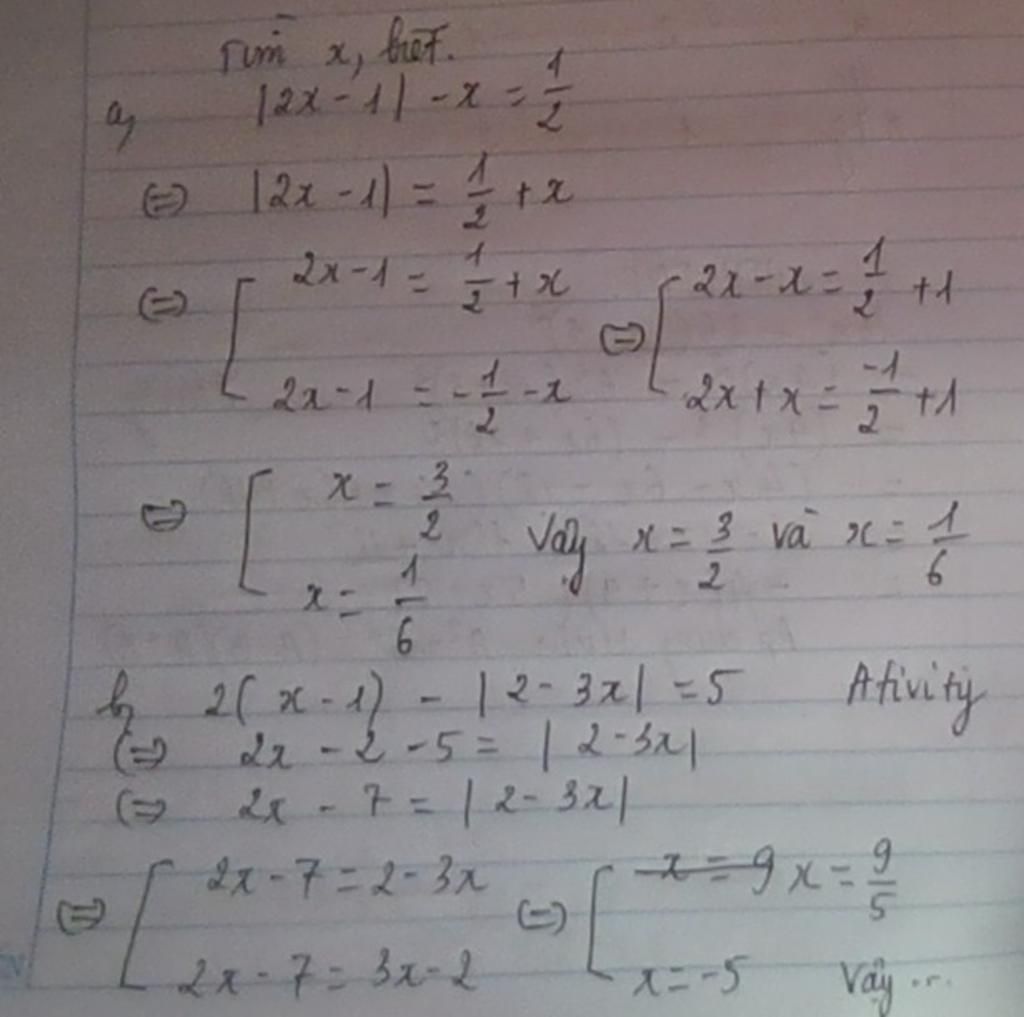 Tìm x, biết.
a, |2x - 1| - x = 1/2
(=) |2x - 1| = 1/2 + x
(=) [ 2x - 1 = 1/2 + x (=) [ 2x - x = 1/2 + 1
2x - 1 = -1/2 - x 2x + x = -1/2 + 1
(=) [ x = 3/2 Vậy x = 3/2 và x = 1/6
x = 1/6
b, 2(x - 1) - |2 - 3x| = 5 Ativity
(=) 2x - 2 - 5 = |2 - 3x|
(=) 2x - 7 = |2 - 3x|
(=) [ 2x - 7 = 2 - 3x (=) [ x = 9 x = 9/5
2x - 7 = 3x - 2 x = -5 Vậy ...